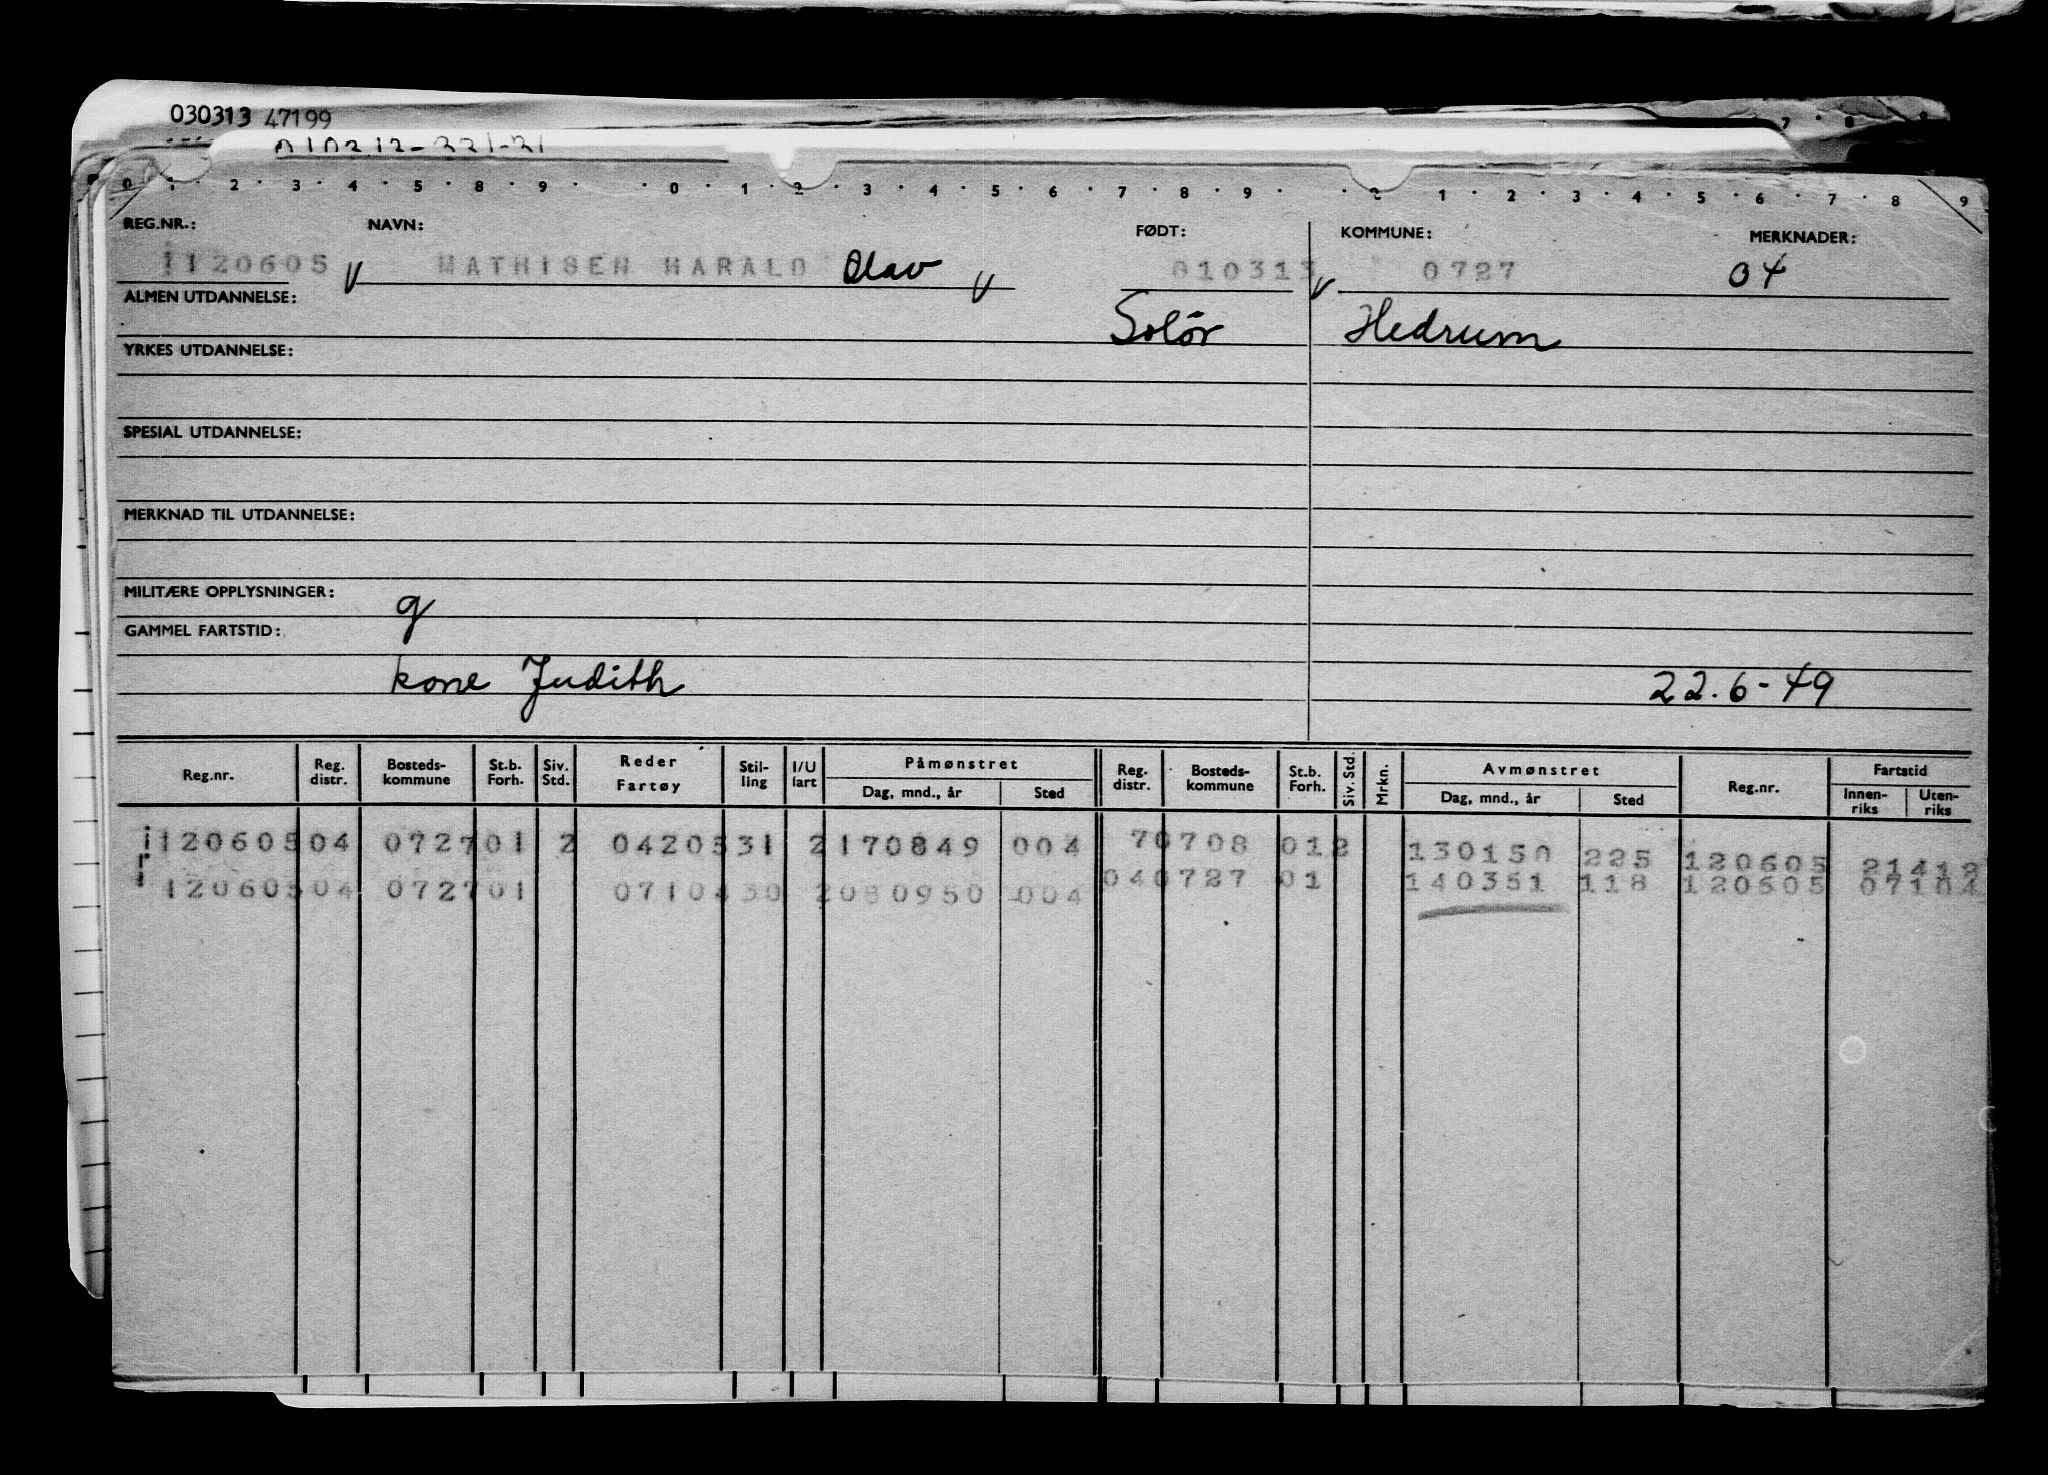 030313 47199
0 1 2 3 4 5 8 9 0 1 2 3 4 5 6 7 8 9 0 1 2 3 4 5 6 7 8 9
REG.NR.: NAVN: FØDT: KOMMUNE: MERKNADER:
1120605 MATHISEN HARALD Olav 010313 0727 04
ALMEN UTDANNELSE: Solör Hedrum
YRKES UTDANNELSE:
SPESIAL UTDANNELSE:
MERKNAD TIL UTDANNELSE:
MILITÆRE OPPLYSNINGER: g
GAMMEL FARTSTID:
kone Judith 22.6-49
Reg.nr. Reg. distr. Bosteds-kommune St.b. Forh. Siv. Std. Reder Fartøy Stil-ling I/U fart Påmønstret Dag, mnd., år Sted Reg. distr. Bosteds-kommune St.b. Forh. Siv. Std. Mrkn. Avmønstret Dag, mnd., år Sted Reg.nr. Fartstid Innen-riks Uten-riks
1120605 04 0727 01 2 04205 31 2 170849 004 70708 01 2 130150 225 120605 21412
120605 04 0727 01 0710430 2 080950 004 040727 01 140351 118 120605 07104